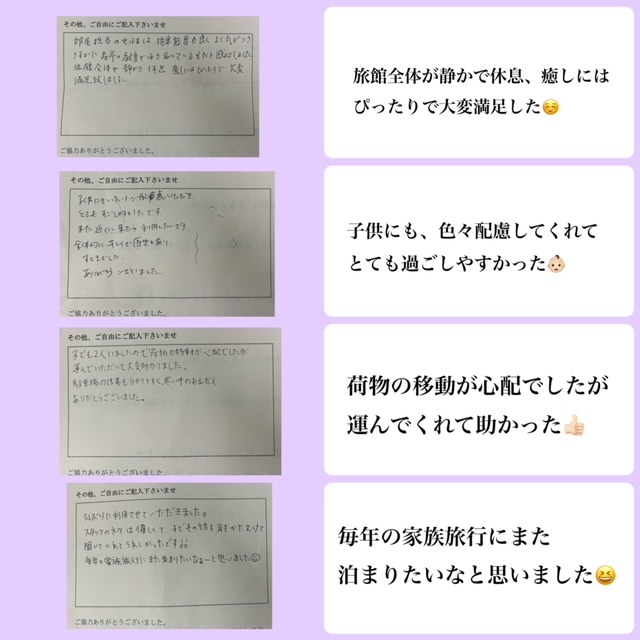 その他、ご自由にご記入下さいませ
旅館全体が静かで休息、癒しにはぴったりで大変
満足致しました。
ご協力ありがとうございました。
旅館全体が静かで休息、癒しには
ぴったりで大変満足した☺️
その他、ご自由にご記入下さいませ
子供にもいろいろご配慮いただき
とてもすごしやすかったです
また近くに来たら利用したいです
全体的にキレイで歴史もあり
すてきでした
ありがとうございました。
ご協力ありがとうございました。
子供にも、色々配慮してくれて
とても過ごしやすかった👶🏻
その他、ご自由にご記入下さいませ
子ども2人いましたので荷物の移動が心配でしたが
運んでいただいて大変助かりました。
ありがとうございました。
ご協力ありがとうございました。
荷物の移動が心配でしたが
運んでくれて助かった👍🏻
その他、ご自由にご記入下さいませ
久しぶりに利用させていただきました。
スタッフの方々は優しくて、子どもの話も耳をかたむけて
聞いてくれてうれしかったです!!
毎年の家族旅行にまた泊まりたいなぁーと思いました
ご協力ありがとうございました。
毎年の家族旅行にまた
泊まりたいなと思いました😆